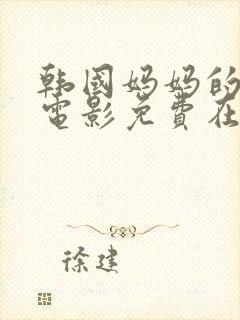 韩国妈妈的
电影免费在
徐建